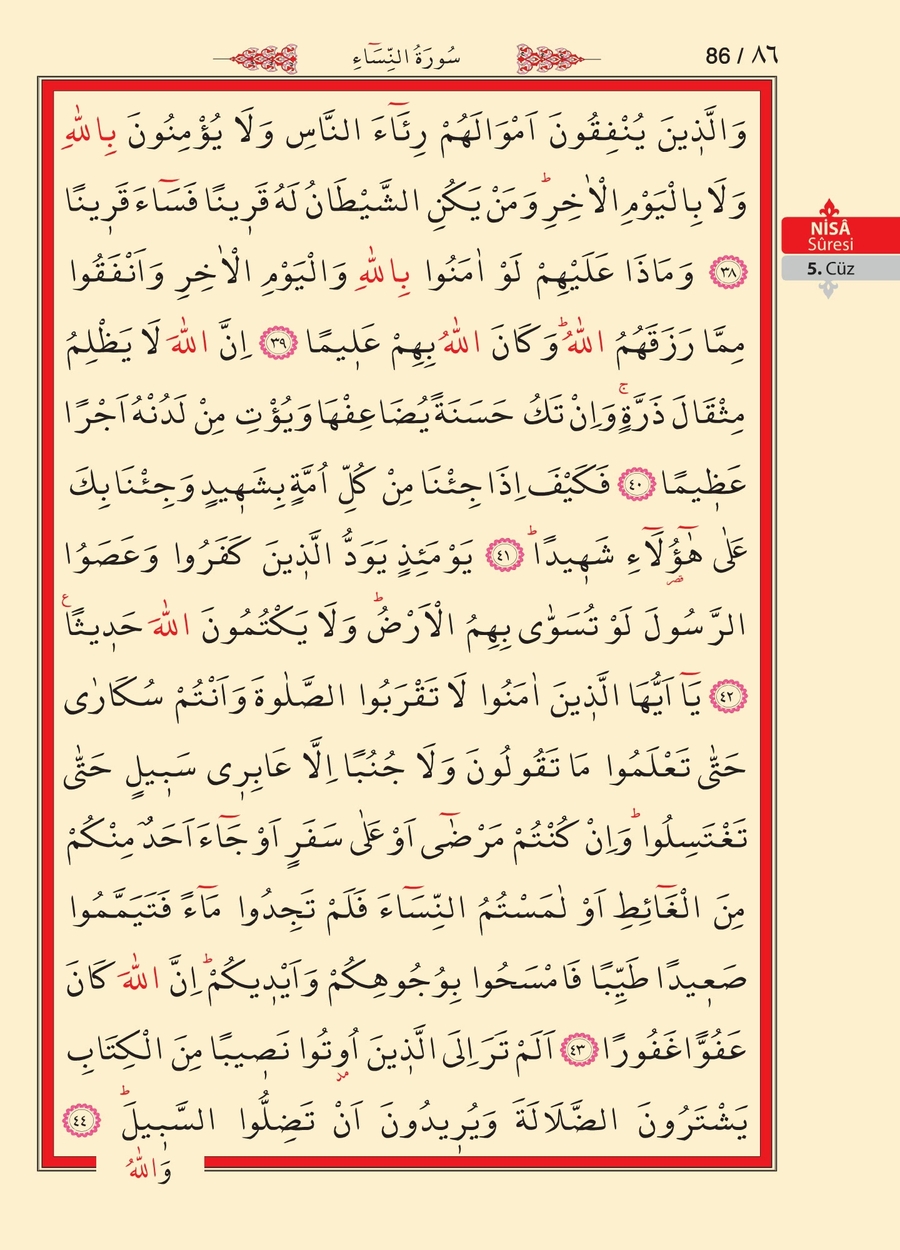 86 / ٨٦
سُورَةُ النِّسَٓاءِ
وَالَّذ۪ينَ يُنْفِقُونَ اَمْوَالَهُمْ رِئَٓاءَ النَّاسِ وَلَا يُؤْمِنُونَ بِاللّٰهِ
وَلَا بِالْيَوْمِ الْاٰخِرِۜ وَمَنْ يَكُنِ الشَّيْطَانُ لَهُ قَر۪ينًا فَسَٓاءَ قَر۪ينًا
﴿٣٨﴾ وَمَاذَا عَلَيْهِمْ لَوْ اٰمَنُوا بِاللّٰهِ وَالْيَوْمِ الْاٰخِرِ وَاَنْفَقُوا
مِمَّا رَزَقَهُمُ اللّٰهُۜ وَكَانَ اللّٰهُ بِهِمْ عَل۪يمًا ﴿٣٩﴾ اِنَّ اللّٰهَ لَا يَظْلِمُ
مِثْقَالَ ذَرَّةٍۚ وَاِنْ تَكُ حَسَنَةً يُضَاعِفْهَا وَيُؤْتِ مِنْ لَدُنْهُ اَجْرًا
عَظ۪يمًا ﴿٤٠﴾ فَكَيْفَ اِذَا جِئْنَا مِنْ كُلِّ اُمَّةٍ بِشَه۪يدٍ وَجِئْنَا بِكَ
عَلٰى هٰٓؤُ۬لَٓاءِ شَه۪يدًاۜ ﴿٤١﴾ يَوْمَئِذٍ يَوَدُّ الَّذ۪ينَ كَفَرُوا وَعَصَوُا
الرَّسُولَ لَوْ تُسَوّٰى بِهِمُ الْاَرْضُۜ وَلَا يَكْتُمُونَ اللّٰهَ حَد۪يثًا۟
﴿٤٢﴾ يَٓا اَيُّهَا الَّذ۪ينَ اٰمَنُوا لَا تَقْرَبُوا الصَّلٰوةَ وَاَنْتُمْ سُكَارٰى
حَتّٰى تَعْلَمُوا مَا تَقُولُونَ وَلَا جُنُبًا اِلَّا عَابِر۪ى سَب۪يلٍ حَتّٰى
تَغْتَسِلُواۜ وَاِنْ كُنْتُمْ مَرْضٰٓى اَوْ عَلٰى سَفَرٍ اَوْ جَٓاءَ اَحَدٌ مِنْكُمْ
مِنَ الْغَٓائِطِ اَوْ لٰمَسْتُمُ النِّسَٓاءَ فَلَمْ تَجِدُوا مَٓاءً فَتَيَمَّمُوا
صَع۪يدًا طَيِّبًا فَامْسَحُوا بِوُجُوهِكُمْ وَاَيْد۪يكُمْۜ اِنَّ اللّٰهَ كَانَ
عَفُوًّا غَفُورًا ﴿٤٣﴾ اَلَمْ تَرَ اِلَى الَّذ۪ينَ اُو۫تُوا نَص۪يبًا مِنَ الْكِتَابِ
يَشْتَرُونَ الضَّلَالَةَ وَيُر۪يدُونَ اَنْ تَضِلُّوا السَّب۪يلَۜ ﴿٤٤﴾
وَاللّٰهُ
NİSÂ
Sûresi
5. Cüz